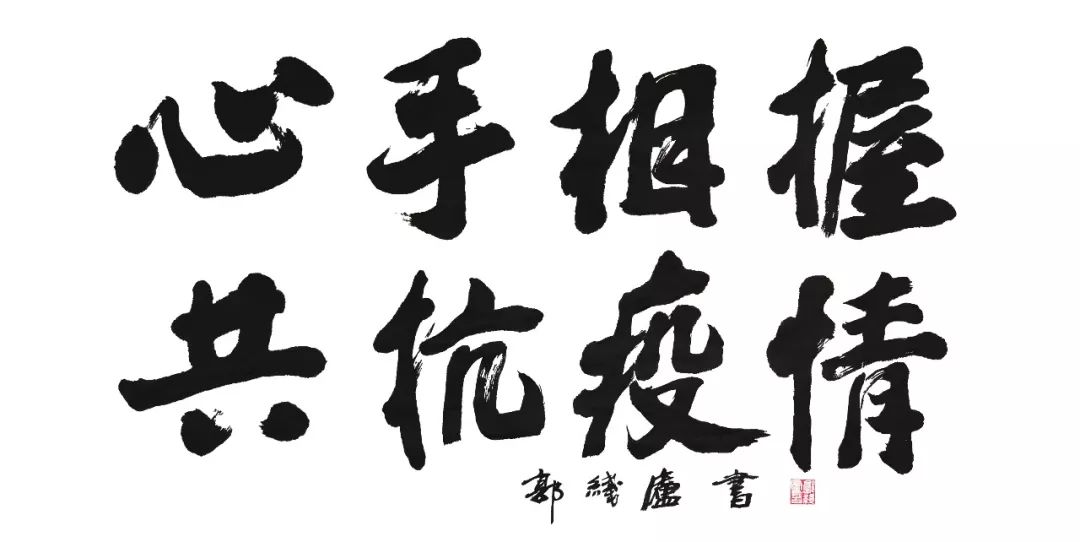 心手相握
共抗疫情
郭线庐書